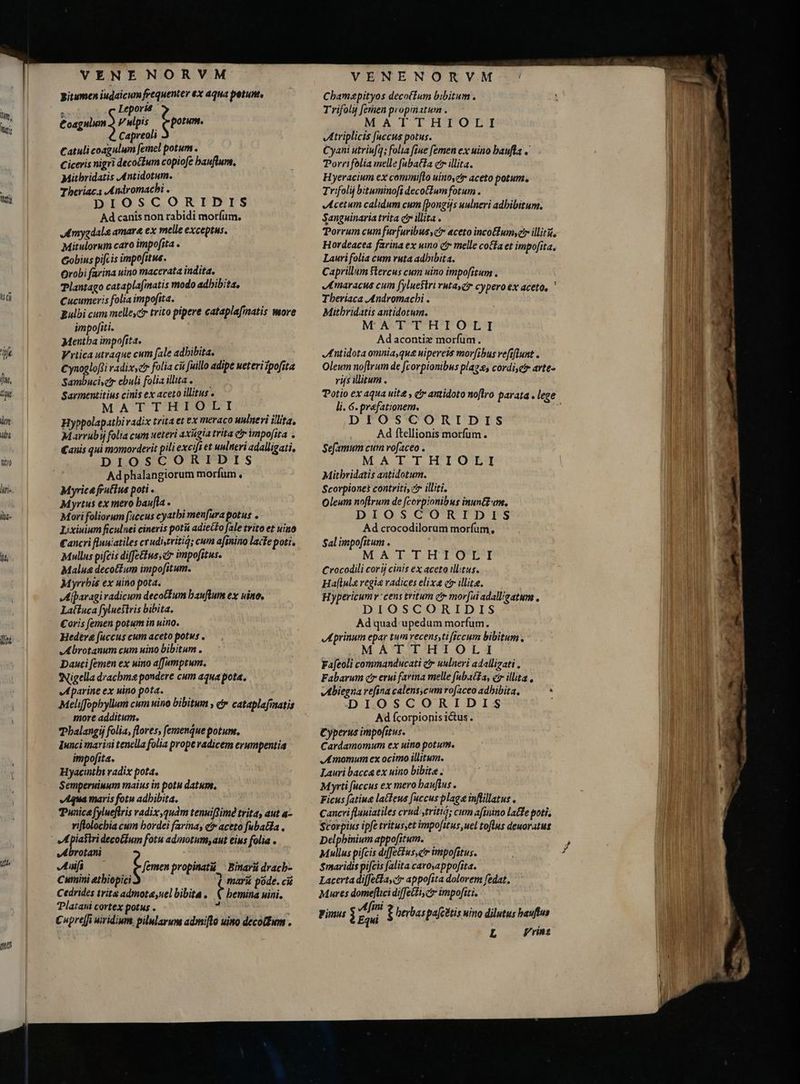 VENENORVM
Bitumen iudaicum frequenter ex aqua potum.
Leporis
Coagulum Vulpis potum.
Capreoli
Catuli coagulum semel potum.
Ciceris nigri decoctum copiose haustum.
Mithridatis Antidotum.
Theriaca Andromachi.
DIOSCORIDIS
Ad canis non rabidi morsum.
Amygdale amaræ ex melle exceptus.
Mitulorum caro imposita.
Gobius piscis impositus.
Orobi farina uino macerata indita.
Plantago cataplasmatis modo adhibita.
Cucumeris folia imposita.
Bulbi cum melle, & trito pipere cataplasmatis more
impositi.
Mentha imposita.
Vrtica utraque cum sale adhibita.
Cynoglossi radix, & folia cū suillo adipe ueteri ĩposita
Sambuci, & ebuli folia illita.
Sarmentitius cinis ex aceto illitus.
MATTHIOLI
Hyppolapathi radix trita et ex meraco uulneri illita.
Marrubij folia cum ueteri axūgia trita & imposita.
Canis qui momorderit pili excisi et uulneri adalligati.
DIOSCORIDIS
Ad phalangiorum morsum.
Myricæ fructus poti.
Myrtus ex mero hausta.
Mori foliorum succus cyathi mensura potus.
Lixiuium ficulnei cineris potū adiecto sale trito et uino
Cancri fluuiatiles crudi, tritiq; cum asinino lacte poti.
Mullus piscis dissectus, & impositus.
Maluæ decoctum impositum.
Myrrhis ex uino pota.
Asparagi radicum decoctum haustum ex uino.
Lactuca syluestris bibita.
Coris semen potum in uino.
Hederæ succus cum aceto potus.
Abrotanum cum uino bibitum.
Dauci semen ex uino assumptum.
Nigella drachmæ pondere cum aqua pota.
Aparine ex uino pota.
Melissophyllum cum uino bibitum, & cataplasmatis
more additum.
Phalangij folia, flores, semenque potum.
Iunci marini tenella folia prope radicem erumpentia
imposita.
Hyacinthi radix pota.
Semperuiuum maius in potu datum.
Aqua maris fotu adhibita.
Punicæ syluestris radix, quàm tenuissime trita, aut a-
ristolochia cum hordei farina, & aceto subacta.
Apiastri decoctum fotu admotum, aut eius folia.
Abrotani
Anisi semen propinatū Binarū drach-
Cumini æthiopici marū pōde. cū
Cedrides tritæ admotæ, uel bibitæ. hemina uini.
Platani cortex potus.
Cupressi uiridium pilularum admisto uino decoctum.
VENENORVM
Chamæpityos decoctum bibitum.
Trifolij semen propinatum.
MATTHIOLI
Atriplicis succus potus.
Cyani utriusq; folia siue semen ex uino hausta.
Porri folia melle subacta & illita.
Hyeracium ex commisto uino, & aceto potum.
Trifolij bituminosi decoctum fotum.
Acetum calidum cum spongijs uulneri adhibitum.
Sanguinaria trita & illita.
Porrum cum furfuribus, & aceto incoctum, & illitū.
Hordeacea farina ex uino & melle cocta et imposita.
Lauri folia cum ruta adhibita.
Caprillum stercus cum uino impositum.
Amaracus cum syluestri ruta, & cypero ex aceto.
Theriaca Andromachi.
Mithridatis antidotum.
MATTHIOLI
Ad acontiæ morsum.
Antidota omnia, quæ uipereis morsibus resistunt.
Oleum nostrum de scorpionibus plagæ, cordi, & arte-
rijs illitum.
Potio ex aqua uitæ, & antidoto nostro parata. lege
li. 6. præfationem.
DIOSCORIDIS
Ad stellionis morsum.
Sesamum cum rosaceo.
MATTHIOLI
Mithridatis antidotum.
Scorpiones contriti, & illiti.
Oleum nostrum de scorpionibus inunctum.
DIOSCORIDIS
Ad crocodilorum morsum.
Sal impositum.
MATTHIOLI
Crocodili corij cinis ex aceto illitus.
Hastulæ regiæ radices elixæ & illitæ.
Hypericum recens tritum & morsui adalligatum.
DIOSCORIDIS
Ad quadrupedum morsum.
Aprinum epar tum recens, tū siccum bibitum.
MATTHIOLI
Faseoli commanducati & uulneri adalligati.
Fabarum & erui farina melle subacta, & illita.
Abiegna resina calens, cum rosaceo adhibita.
DIOSCORIDIS
Ad scorpionis ictus.
Cyperus impositus.
Cardamomum ex uino potum.
Amomum ex ocimo illitum.
Lauri baccæ ex uino bibitæ.
Myrti succus ex mero haustus.
Ficus satiuæ lacteus succus plagæ instillatus.
Cancri fluuiatiles crudi, tritiq; cum asinino lacte poti.
Scorpius ipse tritus, et impositus, uel tostus deuoratus
Delphinium appositum.
Mullus piscis dissectus, & impositus.
Smaridis piscis salita caro, apposita.
Lacerta dissecta, & apposita dolorem sedat.
Mures domestici dissecti, & impositi.
Fimus Asini Equi herbas pascētis uino dilutus haustus
L Vrinæ